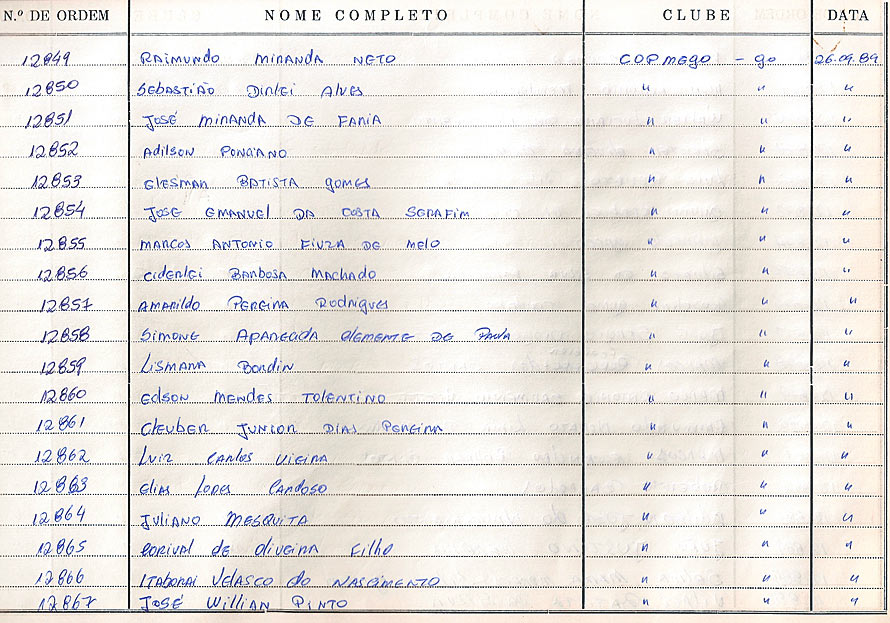 N.º DE ORDEM NOME COMPLETO CLUBE DATA
12849 RAIMUNDO MIRANDA NETO COPMEGO - GO 26.09.89
12850 SEBASTIÃO DIRLEI ALVES " " "
12851 JOSÉ MIRANDA DE FARIA " " "
12852 ADILSON PONCIANO " " "
12853 GLESMAR BATISTA GOMES " " "
12854 JOSE EMANUEL DA COSTA SERAFIM " " "
12855 MARCOS ANTONIO FIUZA DE MELO " " "
12856 CIDERLEI BARBOSA MACHADO " " "
12857 AMARILDO PEREIRA RODRIGUES " " "
12858 SIMONE APARECIDA CLEMENTE DE PAULA " " "
12859 LISMARA BORDIN " " "
12860 EDSON MENDES TOLENTINO " " "
12861 CLEUBER JUNIOR DIAS PEREIRA " " "
12862 LUIZ CARLOS VIEIRA " " "
12863 ELIAS LOPES CARDOSO " " "
12864 JULIANO MESQUITA " " "
12865 DORIVAL DE OLIVEIRA FILHO " " "
12866 ITABORAI VELASCO DO NASCIMENTO " " "
12867 JOSÉ WILLIAN PINTO " " "